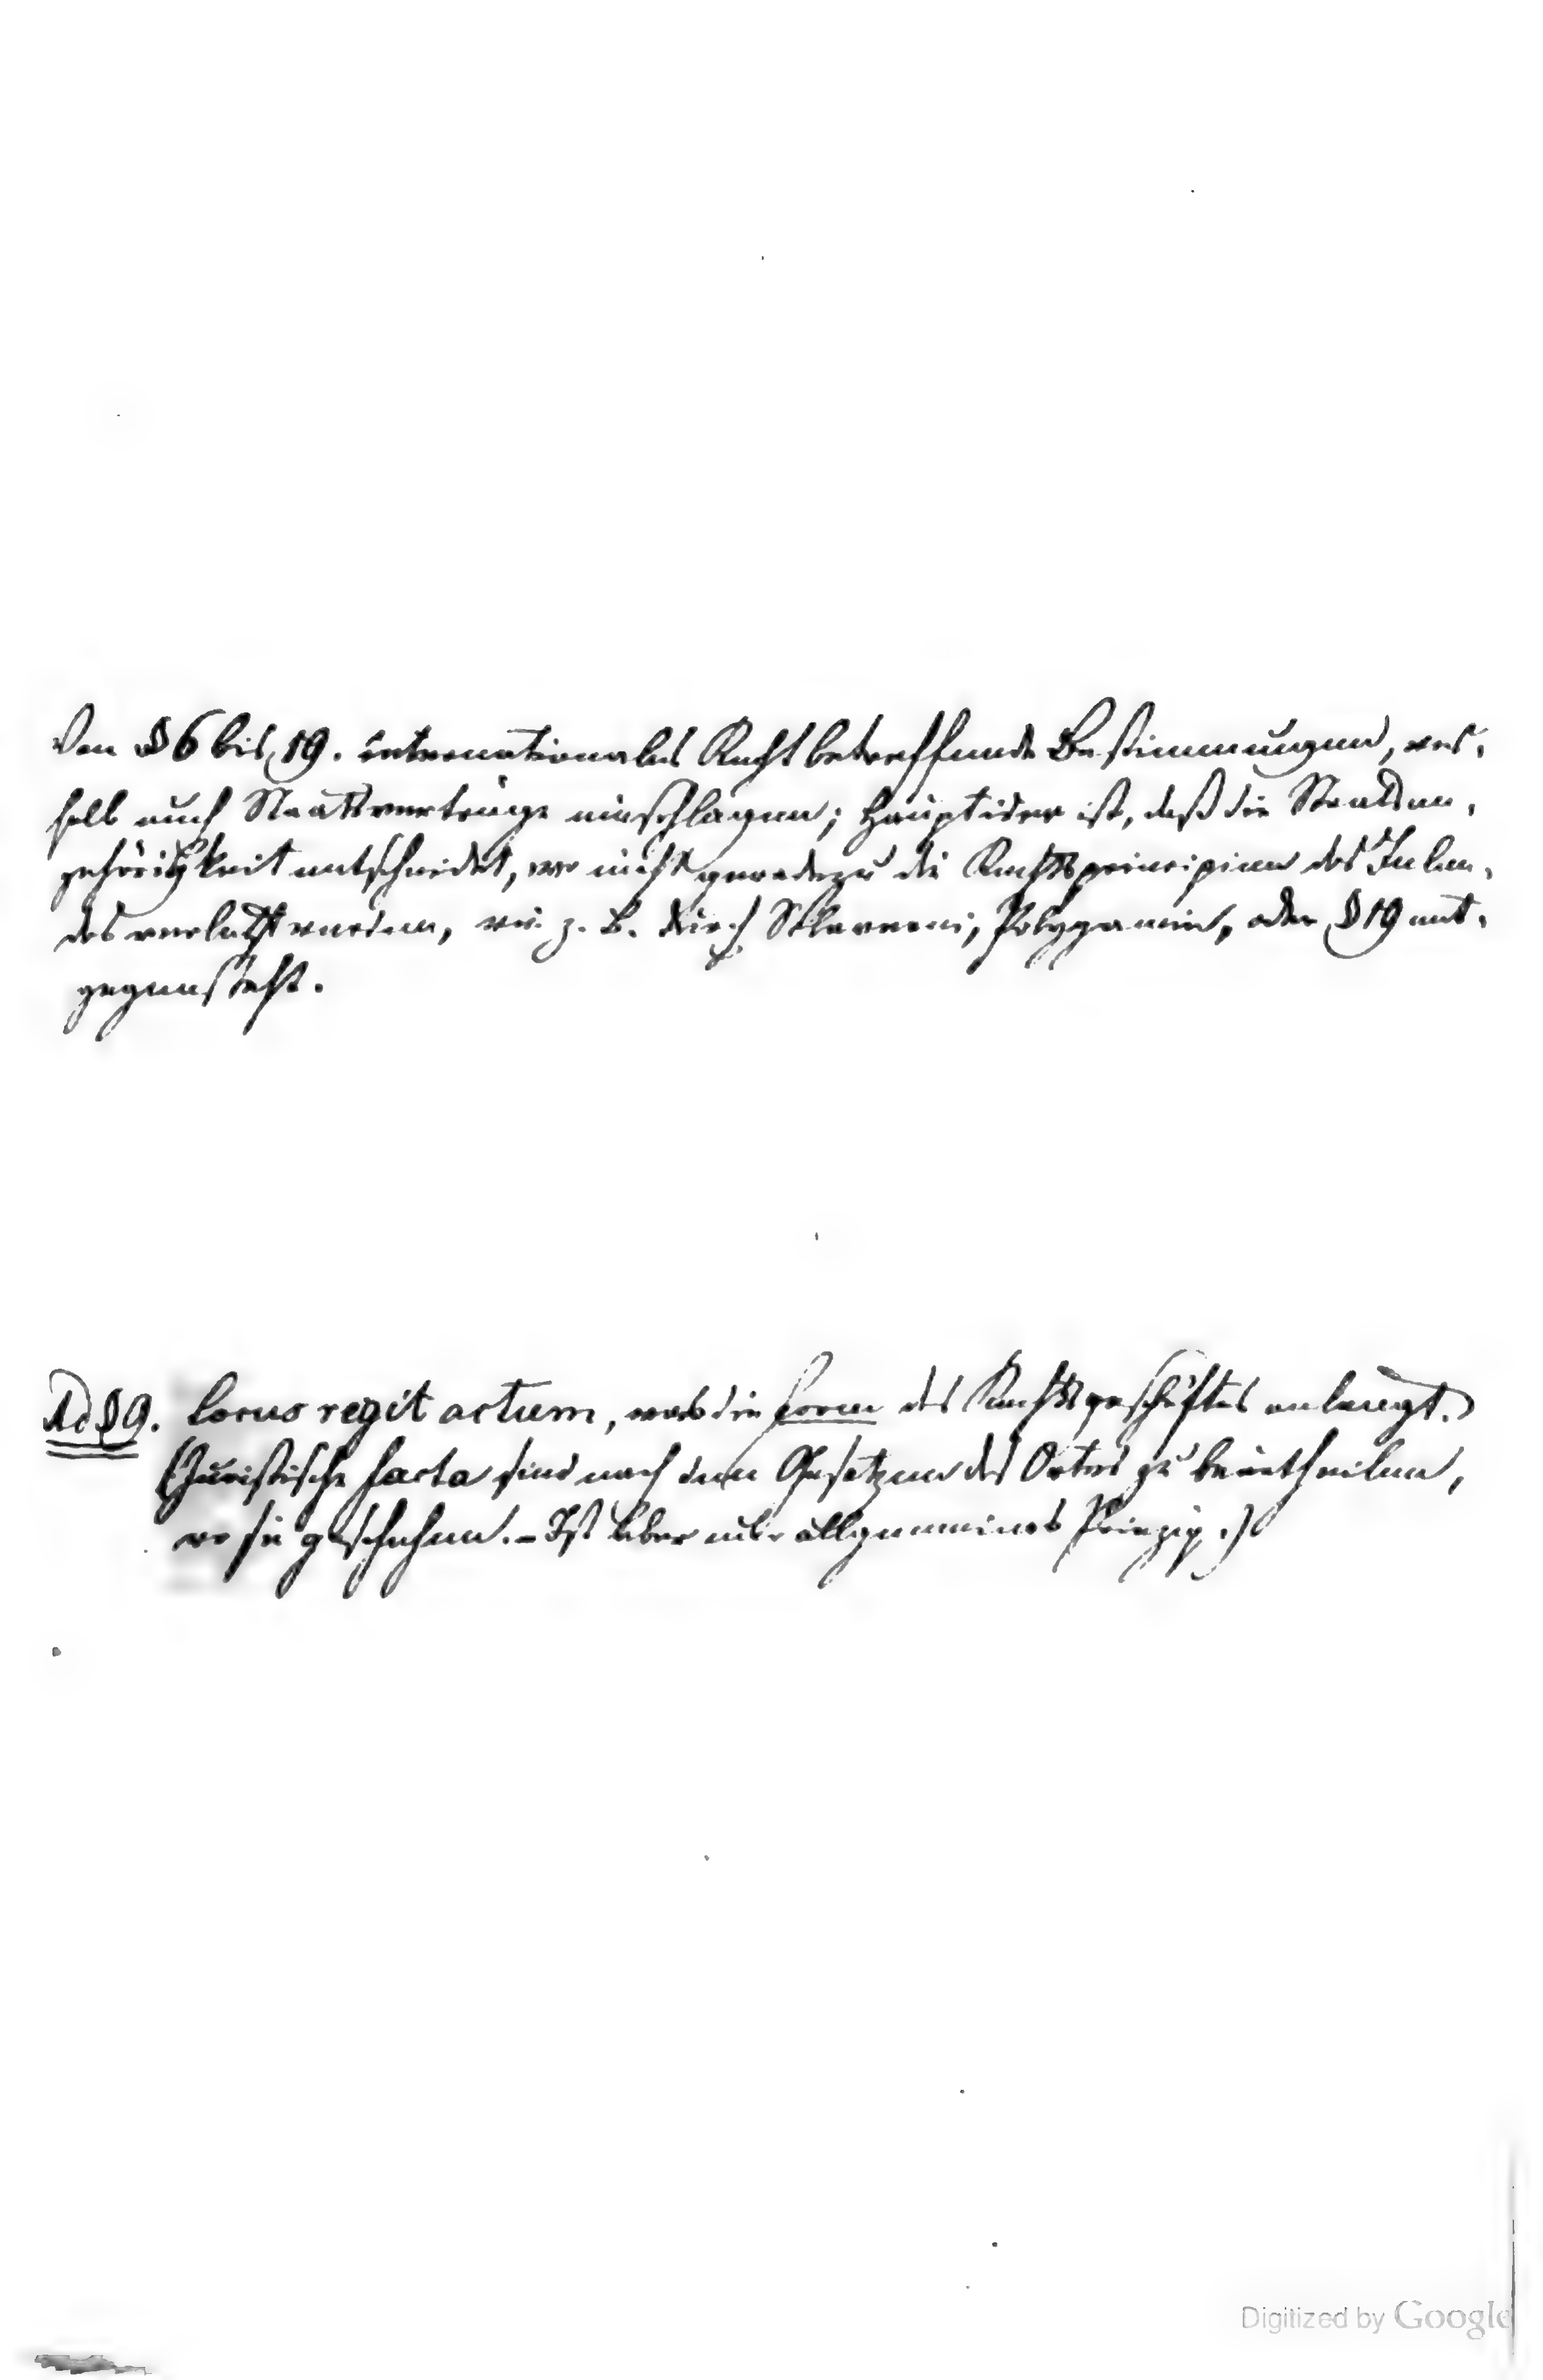 Von § 6 bis 19. internationales Recht betreffende Bestimmungen, wes-
halb auch Staatsverträge einschlagen; Hauptidee ist, daß die Staatsan-
gehörigkeit entscheidet, wo nicht geradezu die Rechtsprincipien des Inlan-
des verletzt werden, wie z. B. durch Sklaverei, Polygamie, oder § 19 ent-
gegensteht.
Ad § 9. Locus regit actum, was die Form des Rechtsgeschäftes anlangt.
(Juristische facta sind nach den Gesetzen des Ortes zu beurtheilen,
wo sie geschehen. - Ist aber allgemeines Prinzip.)
Digitized by Google